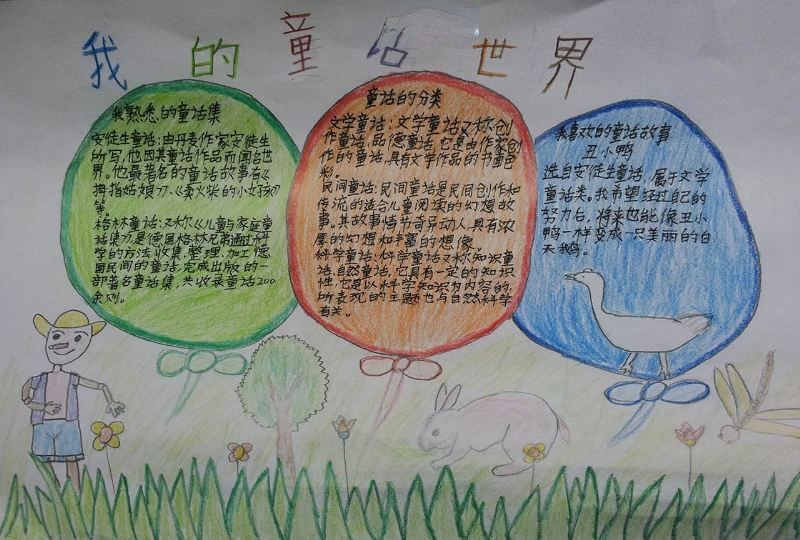 我的童话世界
我熟悉的童话集
安徒生童话：由丹麦作家安徒生
所写，他因其童话作品而闻名世
界。他最著名的童话故事有《
拇指姑娘》、《卖火柴的小女孩》
等。
格林童话：又称《儿童与家庭童
话集》是德国格林兄弟通过科
学的方法收集、整理、加工德
国民间的童话，完成出版的一
部著名童话集，共收录童话200
余则。
童话的分类
文学童话：文学童话又称创
作童话、品德童话，它是由作家创
作的童话，具有文学作品的书面色
彩。
民间童话：民间童话是民间创作和
传流的适合儿童阅读的幻想故
事。其故事情节奇异动人，具有浓
厚的幻想和丰富的想像。
科学童话：科学童话又称知识童
话、自然童话，它具有一定的知识
性，它是以科学知识为内容的，
所表现的主题也与自然科学
有关。
我喜欢的童话故事
丑小鸭
选自安徒生童话，属于文学
童话类。我希望经过自己的
努力后，将来也能像丑小
鸭一样变成一只美丽的白
天鹅。